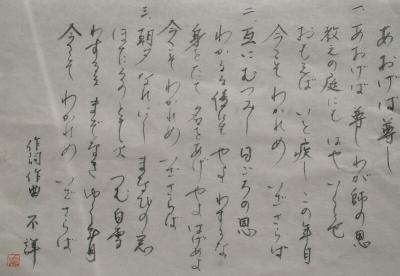 あおげば尊し
一、あおげば 尊し わが師の恩
教えの庭にも はや いくとせ
おもえば いと疾し この年月
今こそ わかれめ いざさらば
二、互にむつみし 日ごろの恩
わかるる後にも やよ わするな
身をたて 名をあげ やよ はげめよ
今こそ わかれめ いざさらば
三、朝夕 なれにし まなびの窓
ほたるのともし火 つむ白雪
わするる まぞなき ゆく年月
今こそ わかれめ いざさらば
作詞作曲 不詳